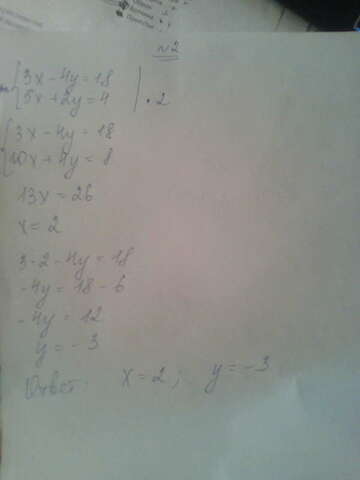 №2
{3x - 4y = 18
{5x + 2y = 4 | · 2
{3x - 4y = 18
{10x + 4y = 8
13x = 26
x = 2
3 · 2 - 4y = 18
-4y = 18 - 6
-4y = 12
y = -3
Ответ: x = 2; y = -3